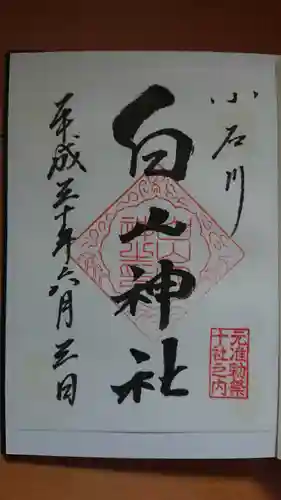 小石川
白山神社
平成三十年六月三日
元准勅祭
十社之内